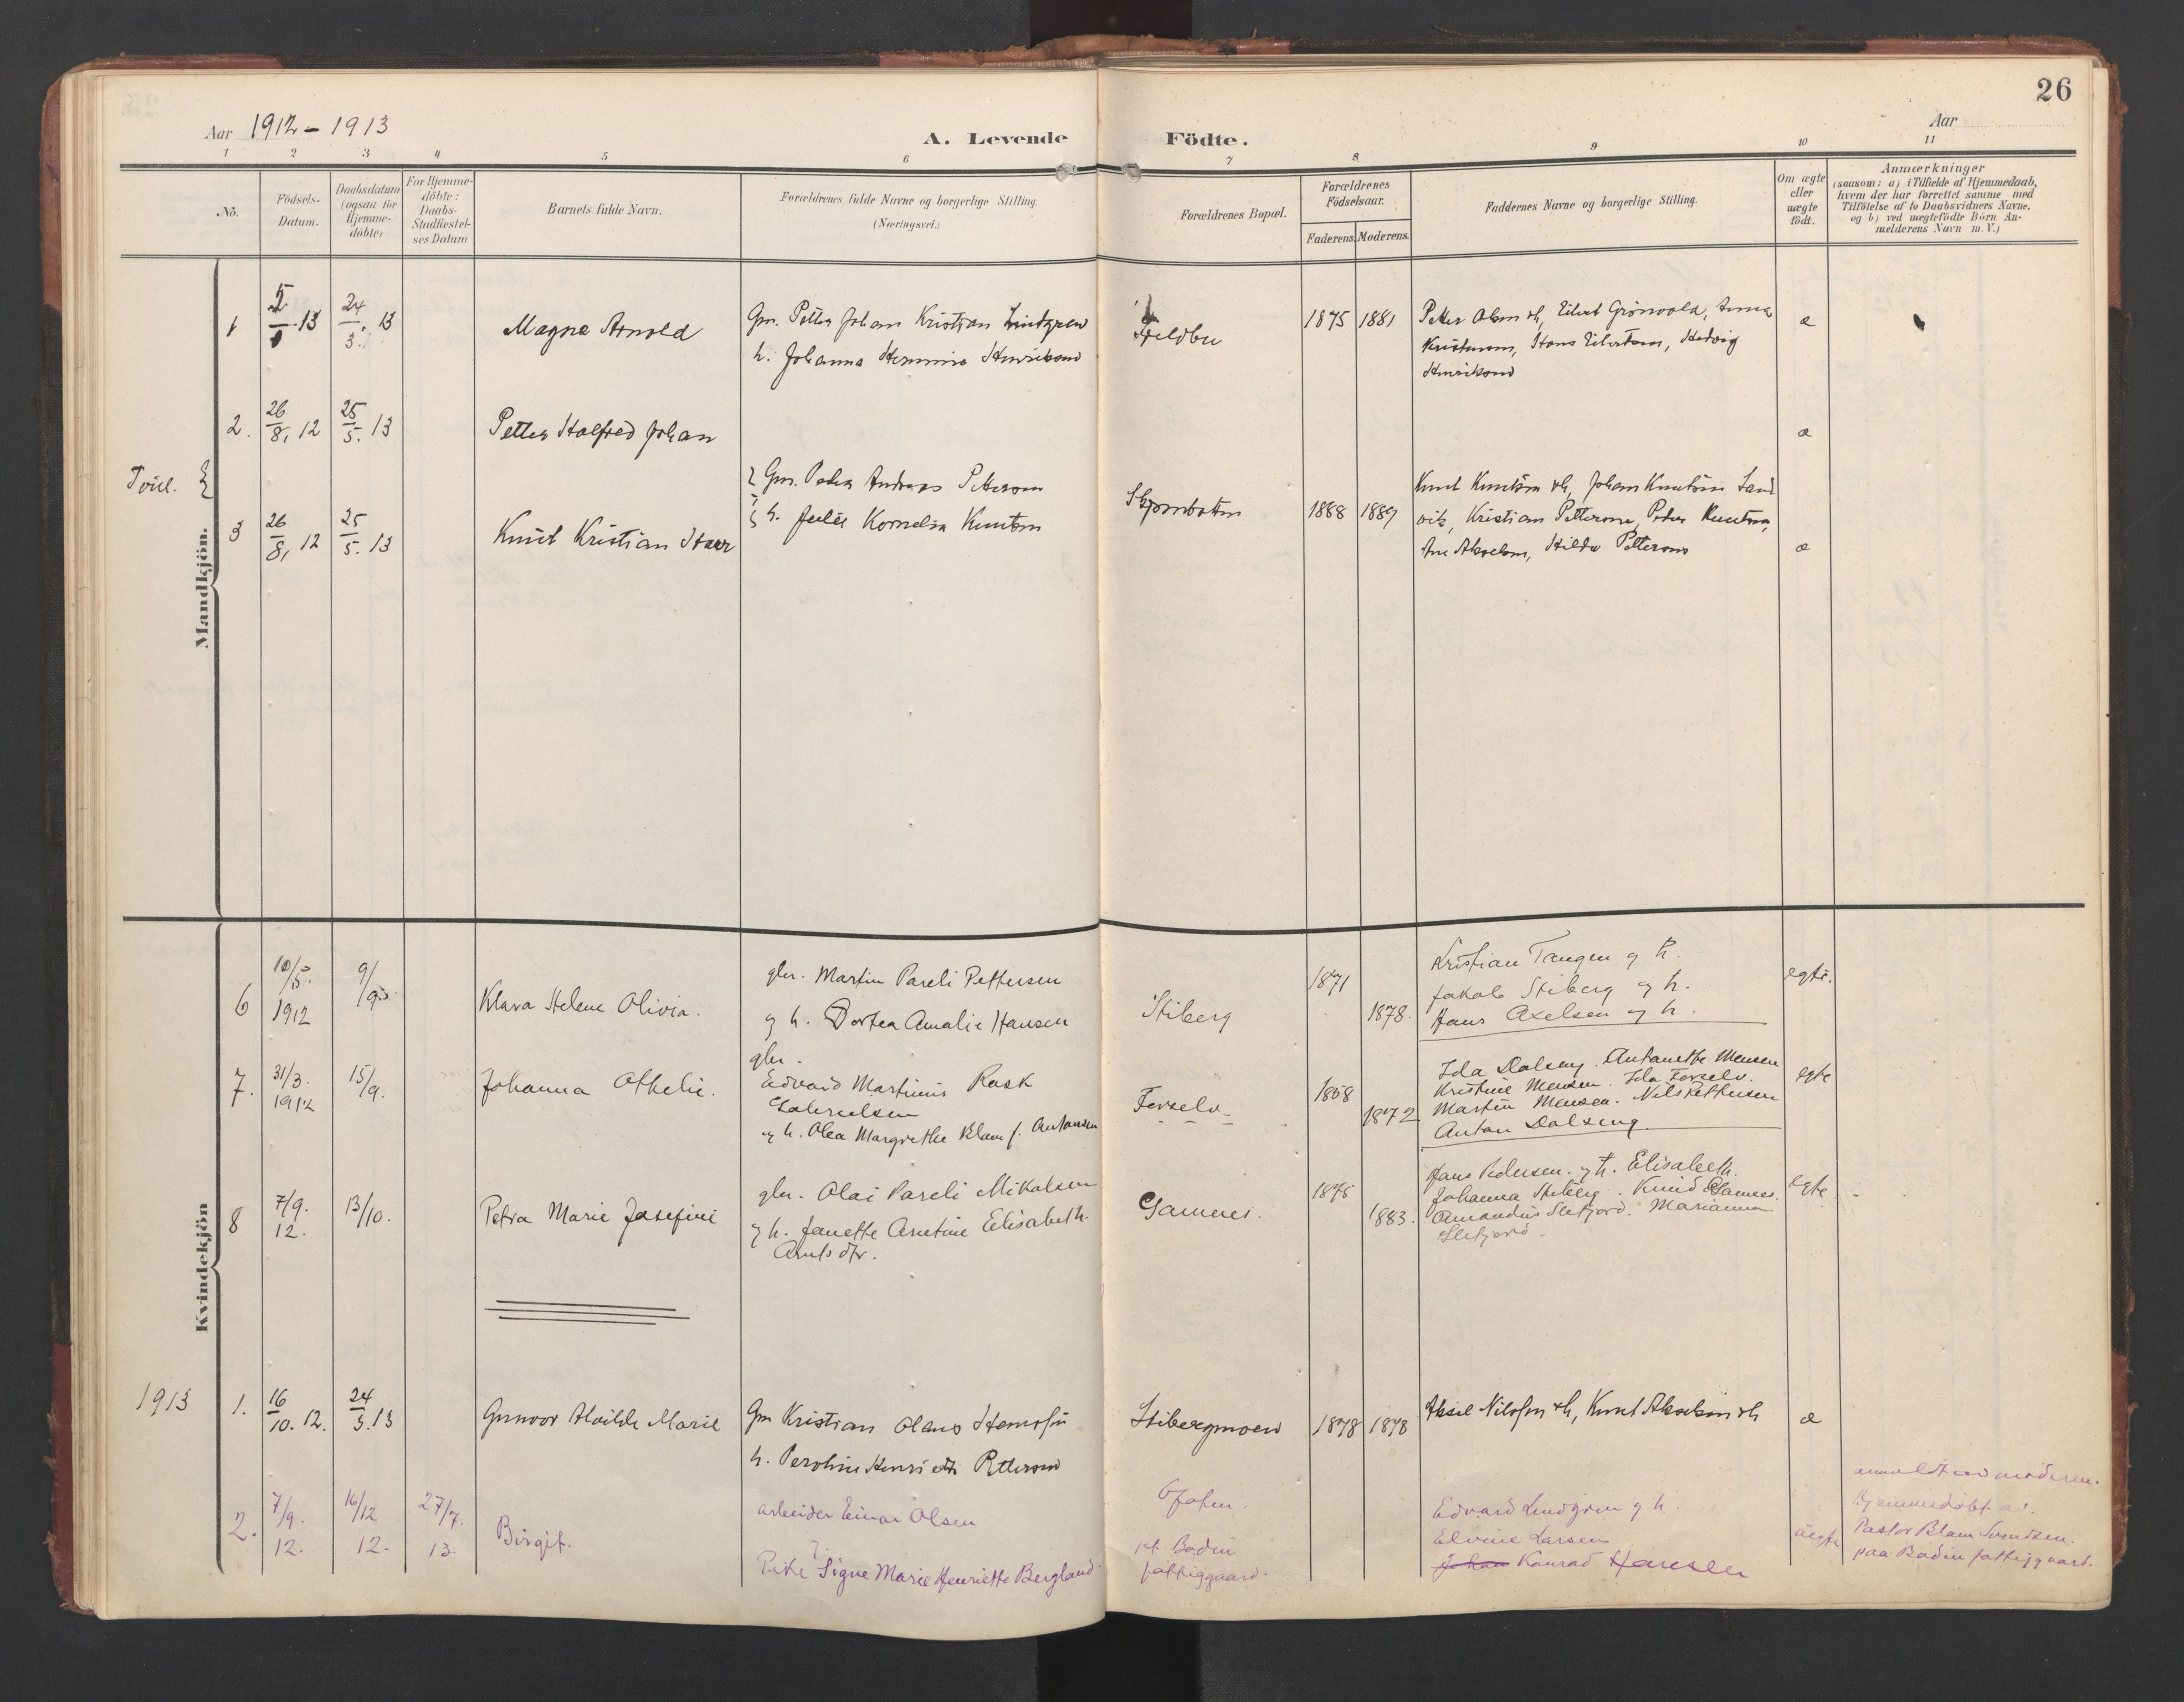 26
Aar 1912 - 1913
A. Levende Födte.
Aar
1 2 3 4 5 6 7 8 9 10 11
No.
Födsels-
Datum.
Daabsdatum
(ogsaa for
Hjemme-
döbte)
For Hjemme-
döbte:
Daabs-
Stadfæstel-
ses Datum
Barnets fulde Navn.
Forældrenes fulde Navne og borgerlige Stilling.
(Næringsvei.)
Forældrenes Bopæl.
Forældrenes
Födselsaar.
Faderens. Moderens.
Faddernes Navne og borgerlige Stilling.
Om ægte
eller
uægte
födt.
Anmærkninger
(saasom: a) i Tilfælde af Hjemmedaab,
hvem der har forrettet samme med
Tilföielse af to Daabsvidners Navne.
og b) ved uægtefödte Börn An-
melderens Navn m. V.)
Mandkjön.
1 5 13 24/3. 13 Magne Arnold
Gm. Petter Johan Kristian Lindgren
h. Johanna Hermine Henriksen
1875 1881
Petter Olsen &h, Eilert Grönvold, Anna
Kristensen, Hans Eilertsen, Hedvig
Henriksen
æ
2. 26/8, 12 25/5. 13 Petter Halfred Johan
æ
Tvil.
Gm. Peder Andreas Petterson
h. Julie Kornelia Knutsen
Skjombotn 1888 1889
Knut Knutsen &h, Johan Knutsen Sand
vik, Kristian Petterson, Peder Knutsen,
Ane Akselsen, Hilda Petterson
3 26/8, 12 25/5. 13 Knut Kristian
æ
Kvindekjön
6 10/5. 1912 9/9 Klara Helene Olivia.
gbr. Martin Pareli Pettersen
og h. Dortea Amalie Hansen
Stiberg
1871 1878.
Kristian Tangen og h.
Jakob Stiberg og h.
Hans Axelsen og h.
egte.
7. 31/3. 1912 15/9. Johanna Othelie.
gbr.
Edvard Martinus Rask
Gabrielsen
og h. Olea Margrethe Klam f. Antonsen
Forselv
1868 1872
Ida Dalseng. Antonette Mensen
Kristine Mensen. Ida Forselv.
Martin Mensen. Nils Pettersen
Anton Dalseng.
egte
8 7/9. 12. 13/10. Petra Marie Josefine
gbr. Olai Pareli Mikalsen
og h. Janette Arntine Elisabeth
Arntsdtr.
Gamnes.
1875 1883.
Hans Pedersen. og h. Elisabeth.
Johanna Stiberg. Knud Gamnes.
Amandus Sletjord. Marianna
Sletjord.
egte
1913
1. 16/10. 12. 24/3. 13 Gunvor Alvilde Marie
Gm Kristian Olaus
h. Peroline Henriette Petterson
Stibergmoen 1878 1878
Aksel Nilssen &h, Knut Akselsen &h
æ
2. 7/9. 12. 16/12 12. 27/7. 13. Birgit.
arbeider Einar Olsen
Pike Signe Marie Henriette Bergland
Ofoten.
pt. Bodin
fattiggaard.
Edvard Lindgren og h.
Elvine Larsen
Johan Konrad Hansen
uegte
anmeldt av moderen.
Hjemmedöbt av.
Pastor Blam Svendsen.
paa Bodin fattiggaard.